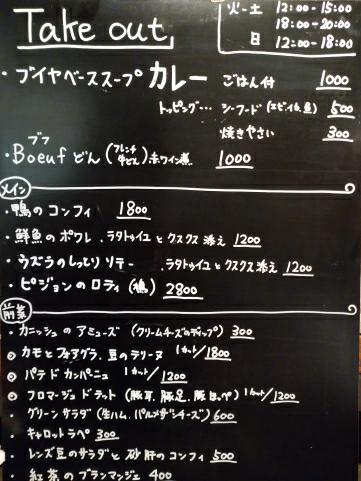 Take out
火-土 12:00-15:00
18:00-20:00
日 12:00-18:00
・ブイヤベーススープカレー ごはん付 1000
トッピング… シーフード(エビ・イカ・魚) 500
焼きやさい 300
ブフ
・Boeufどん(フレンチ牛どん)赤ワイン煮 1000
メイン
・鴨のコンフィ 1800
・鮮魚のポワレ.ラタトゥイユとクスクス添え 1200
・ウズラのしっとりソテー.ラタトゥイユとクスクス添え 1200
・ピジョンのロティ(鳩) 2800
前菜
・カニッシュのアミューズ(クリームチーズのディップ) 300
◎カモとフォアグラ.豆のテリーヌ 1カット/1800
◎パテドカンパーニュ 1カット/1200
◎フロマージュドテット(豚耳.豚足.豚ほっぺ) 1カット/1200
・グリーンサラダ(生ハム.パルメザンチーズ) 600
・キャロットラペ 300
・レンズ豆のサラダと砂肝のコンフィ 500
・紅茶のブランマンジェ 400